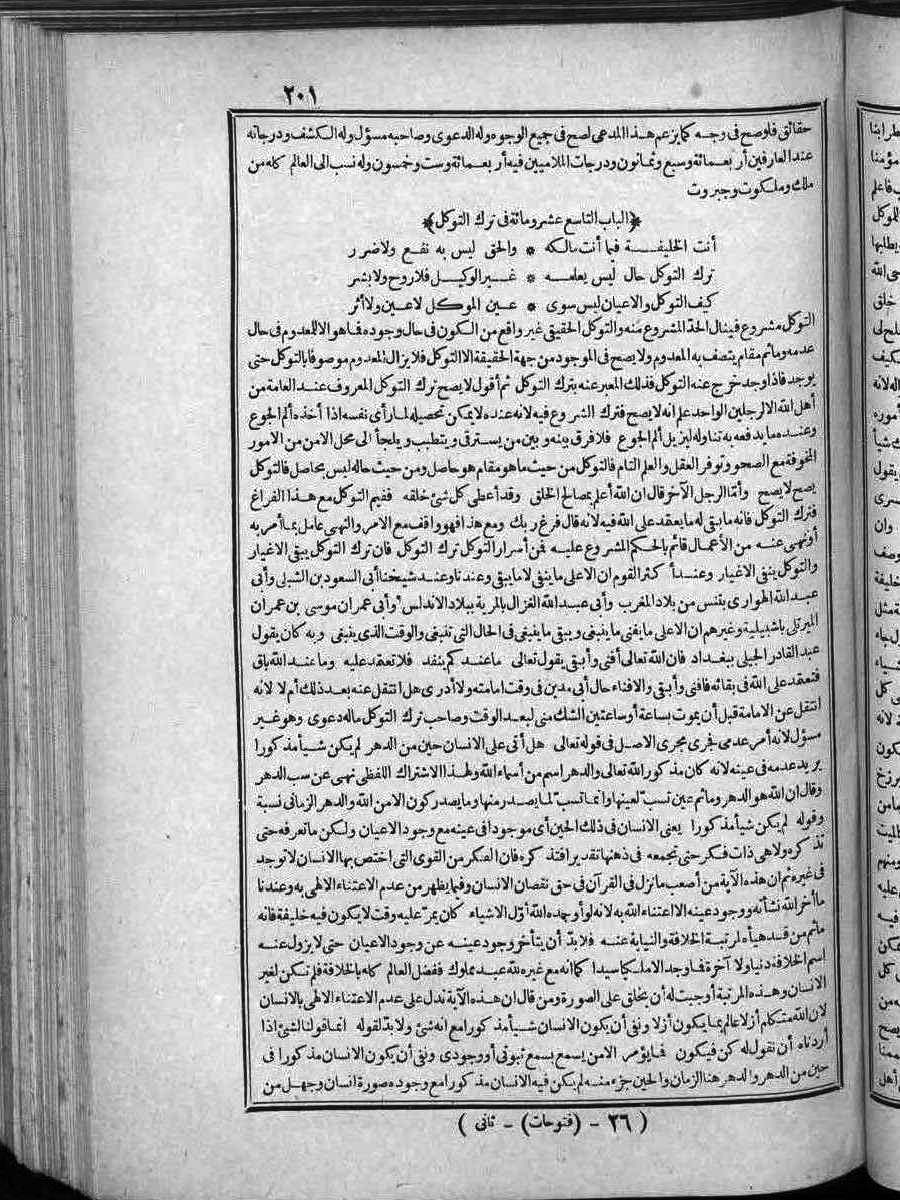 ٢٠١
حقائق فلوصح فى وجه كما يزعم هذا المدعى لصح فى جميع الوجوه وله الدعوى وصاحبه مسؤل وله الكشف ودرجاته
عند العارفين أربعمائة وسبع وثمانون ودرجات الملاميين فيه أربعمائة وست وخمسون وله نسب الى العالم كله من
ملك وملكوت وجبروت
﴿الباب التاسع عشر ومائة فى ترك التوكل﴾
أنت الخليفة فيما أنت مالكه * والحق ليس به نفع ولا ضرر
ترك التوكل حال ليس يعلمه * غير الوكيل فلا روح ولا بشر
كيف التوكل والاعيان ليس سوى * عين الموكل لا عين ولا أثر
التوكل مشروع فينال الحد المشروع منه والتوكل الحقيقى غير واقع من الكون فى حال وجوده فما هو الا للمعدوم فى حال
عدمه وماثم مقام يتصف به المعدوم ولا يصح فى الموجود من جهة الحقيقة الا التوكل فلا يزال المعدوم موصوفا بالتوكل حتى
يوجد فاذا وجد خرج عنه التوكل فذلك المعبر عنه بترك التوكل ثم أقول لا يصح ترك التوكل المعروف عند العامة من
أهل الله الا لرجلين الواحد علم انه لا يصح فترك الشروع فيه لانه عنده لا يمكن تحصيله لما رأى نفسه اذا أخذه ألم الجوع
وعنده ما يدفعه به تناوله ليزيل ألم الجوع فلا فرق بينه وبين من يسترقى ويتطبب ويلجأ الى محل الامن من الامور
المخوفة مع الصحو وتوفر العقل والعلم التام فالتوكل من حيث ما هو مقام هو حاصل ومن حيث حاله ليس بحاصل فالتوكل
يصح لا يصح وأما الرجل الآخر قال ان الله أعلم بمصالح الخلق وقد أعطى كل شئ خلقه ففيم التوكل مع هذا الفراغ
فترك التوكل فانه ما بقى له ما يعتمد على الله فيه لانه قال فرغ ربك ومع هذا فهو واقف مع الامر والنهى عامل بما أمر به
أو نهى عنه من الأعمال قائم بالحكم المشروع عليه فمن أسرار التوكل ترك التوكل فان ترك التوكل يبقى الاغيار
والتوكل ينفى الاغيار وعند أكثر القوم ان الاعلى ما ينفى لا ما يبقى وعندنا وعند شيخنا أبى السعود بن الشبلى وأبى
عبد الله الهوارى بتنس من بلاد المغرب وأبى عبد الله الغزال بالمرية ببلاد الاندلس وأبى عمران موسى بن عمران
الميرتلى باشبيلية وغيرهم ان الاعلى ما يفنى ما ينبغى ويبقى ما ينبغى فى الحال التى تنبغى والوقت الذى ينبغى وبه كان يقول
عبد القادر الجيلى ببغداد فان الله تعالى أفنى وأبقى يقول تعالى ما عندكم ينفد فلا تعتمد عليه وما عند الله باق
فتعتمد على الله فى بقائه فافنى وأبقى والافناء حال أبى مدين فى وقت امامته ولا أدرى هل انتقل عنه بعد ذلك أم لا لانه
انتقل عن الامامة قبل أن يموت بساعة أو ساعتين الشك منى لبعد الوقت وصاحب ترك التوكل ماله دعوى وهو غير
مسؤل لانه أمر عدمى فجرى مجرى الاصل فى قوله تعالى هل أتى على الانسان حين من الدهر لم يكن شيأ مذكورا
يريد عدمه فى عينه لانه كان مذكور الله تعالى والدهر اسم من أسماء الله ولهذا الاشتراك اللفظى نهى عن سب الدهر
وقال ان الله هو الدهر وماثم عين تسب لعينها وانما تسب لما يصدر منها وما يصدر كون الا من الله والدهر الزمانى نسبة
وقوله لم يكن شيأ مذكورا يعنى الانسان فى ذلك الحين أى موجودا فى عينه مع وجود الاعيان ولكن ما تعرفه حتى
تذكره ولا هى ذات فكر حتى تجمعه فى ذهنها تقديرا فتذكره فان الفكر من القوى التى اختص بها الانسان لا توجد
فى غيره ثم ان هذه الآية من أصعب ما نزل فى القرآن فى حق نقصان الانسان وفيما يظهر من عدم الاعتناء الالهى به وعندنا
ما أخر الله نشأته ووجود عينه الا اعتناء الله به لانه لو أوجده الله أول الاشياء كان يمر عليه وقت لا يكون فيه خليفة فانه
ماثم من قد هيأه لمرتبة الخلافة والنيابة عنه فلا بد أن يتأخر وجود عينه عن وجود الاعيان حتى لا يزول عنه
اسم الخلافة دنيا ولا آخرة فما وجد الا ملكا سيدا كما انه مع غيره لله عبد مملوك ففضل العالم كله بالخلافة فلم تكن لغير
الانسان وهذه المرتبة أوجبت له أن يخلق على الصورة ومن قال ان هذه الآية تدل على عدم الاعتناء الالهى بالانسان
لان الله متكلم أزلا عالم بما يكون أزلا ونفى أن يكون الانسان شيأ مذكورا مع انه شئ ولا بد لقوله انما قولنا الشئ اذا
أردناه أن نقول له كن فيكون فما يؤمر الا من يسمع بسمع ثبوتى أو وجودى ونفى أن يكون الانسان مذكورا فى
حين من الدهر والدهر هنا الزمان والحين جزء منه لم يكن فيه الانسان مذكورا مع وجوده صورة انسان وجهل من
( ٢٦ - (فتوحات) - ثانى )